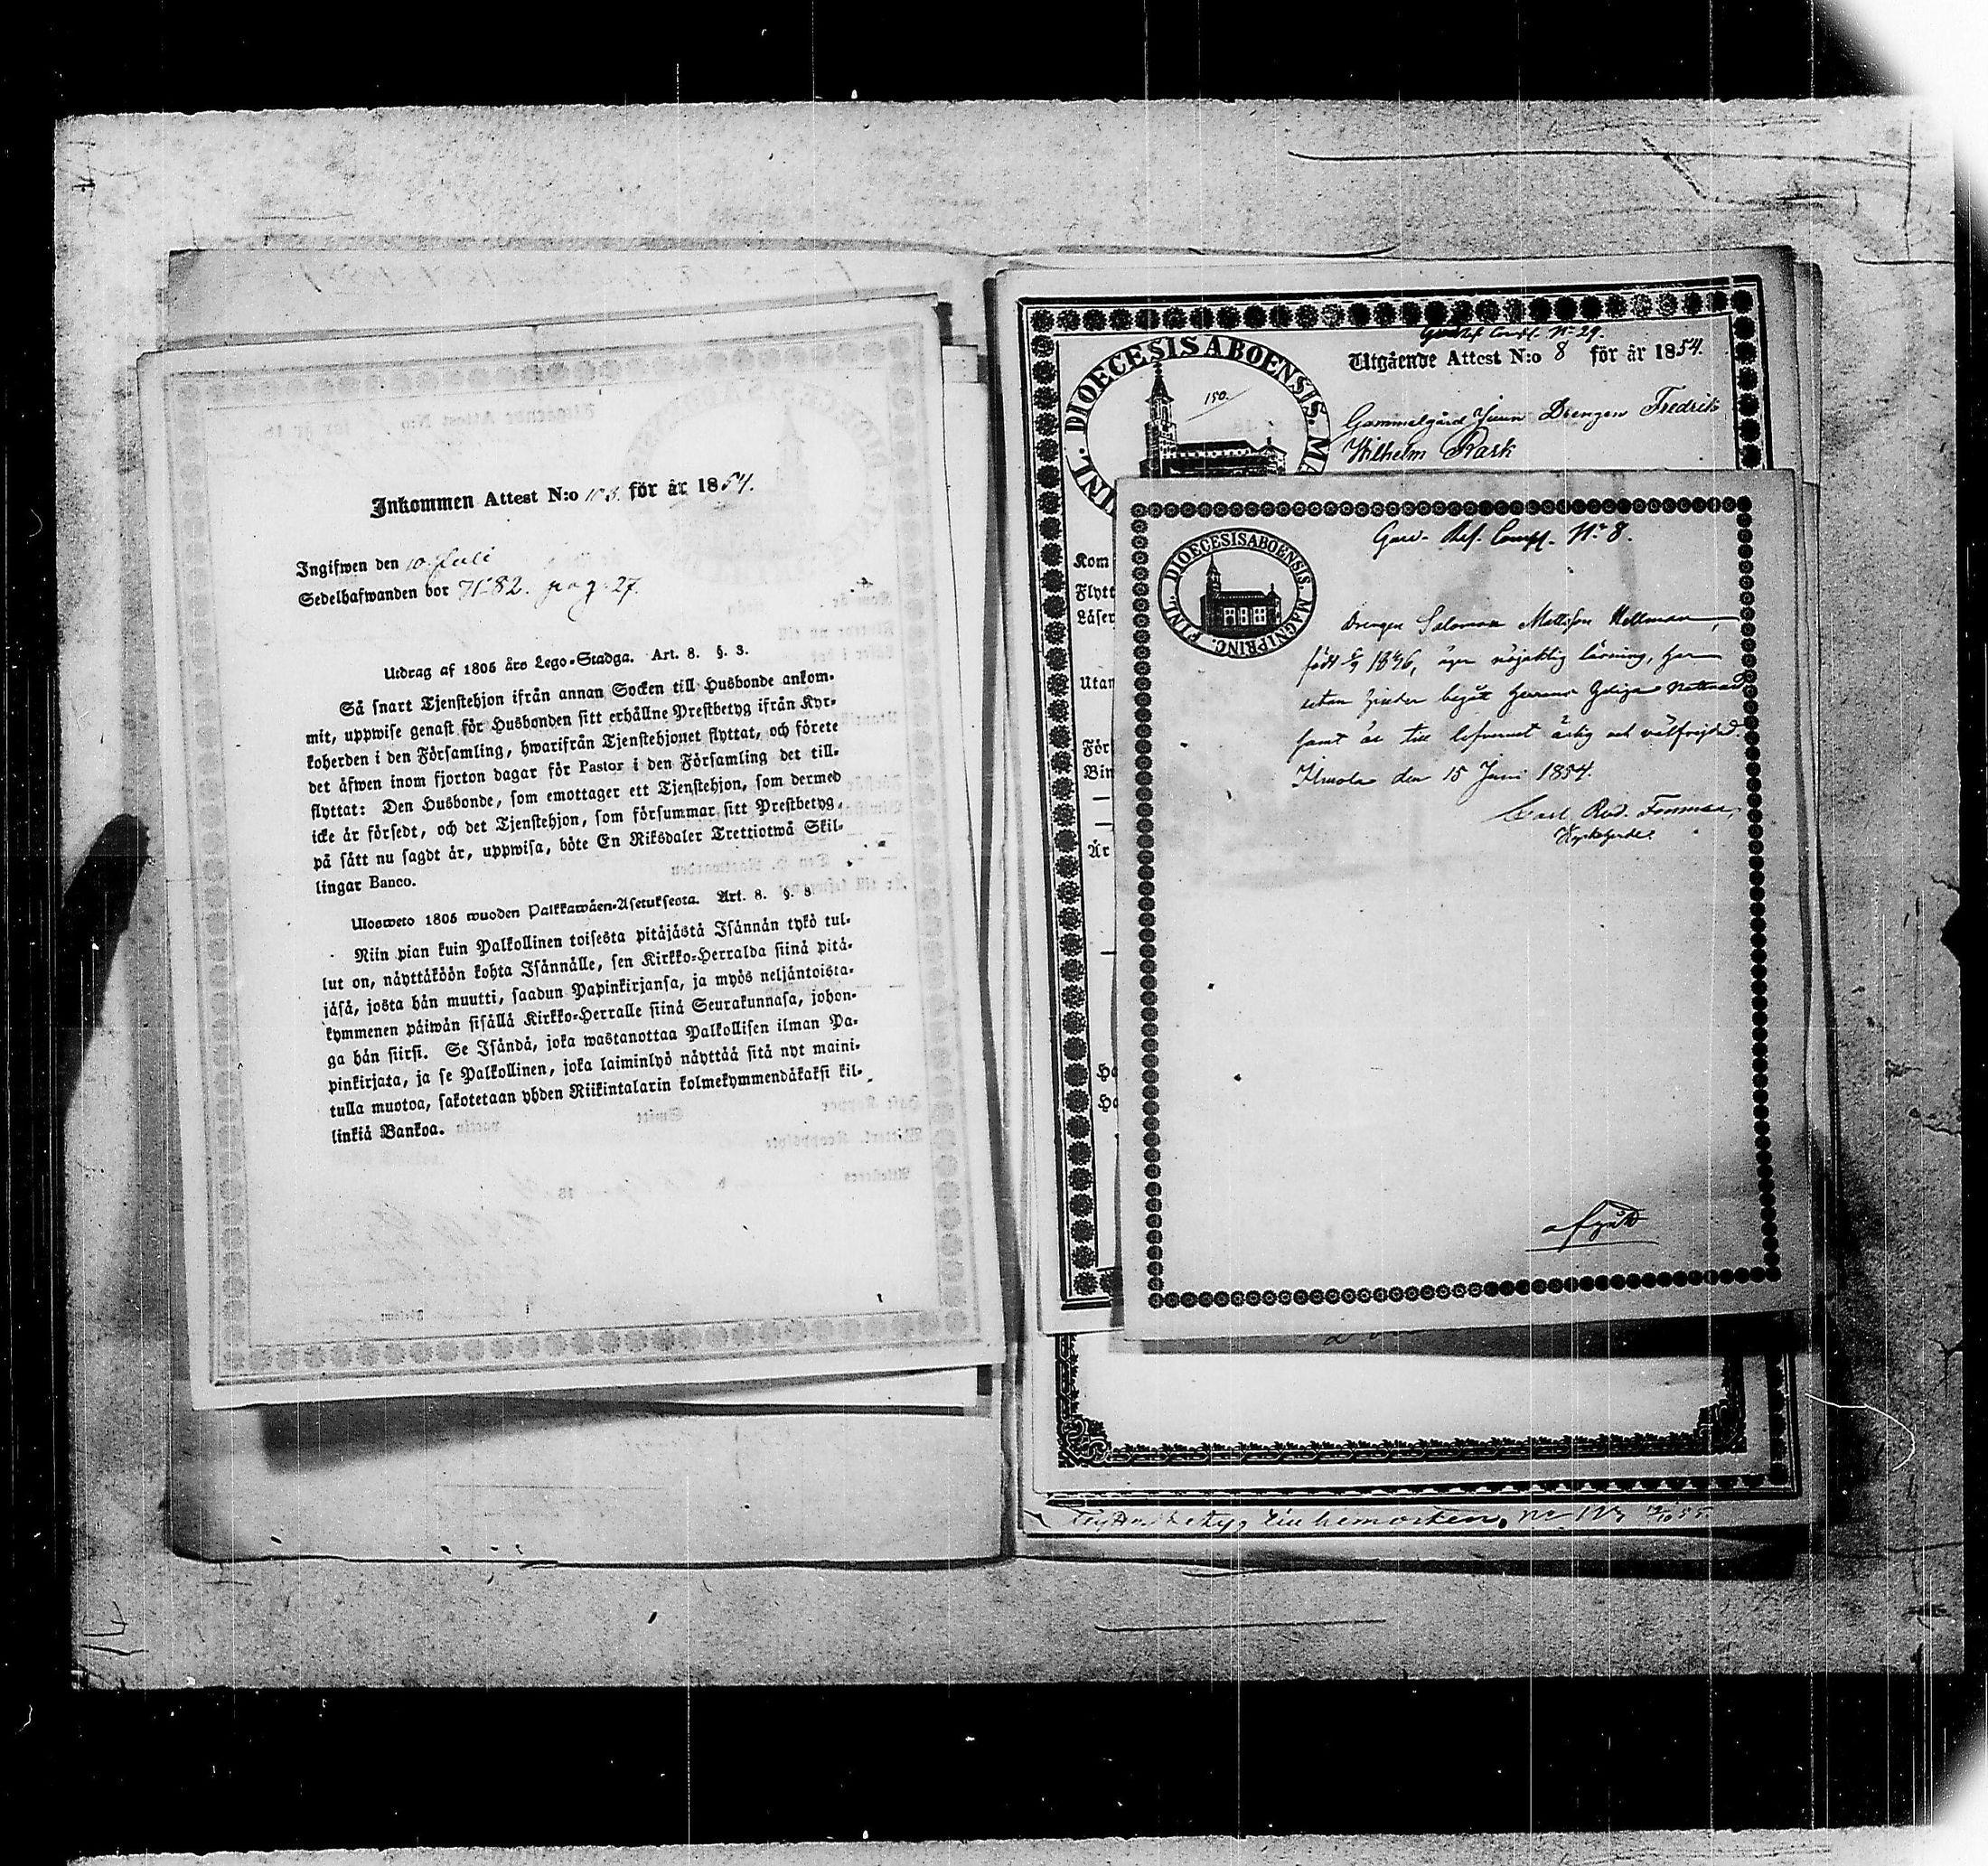 Inkommen Attest N:o för år 1854.
Ingifwen den 10 Juli
Sedelhafwanden bor N:82. pag. 27.
Utdrag af 1805 års Lego-Stadga. Art. 8. §. 3.
Så snart Tjenstehjon ifrån annan Socken till Husbonde ankom-
mit, uppwise genast för Husbonden sitt erhållne Prestbetyg ifrån Kyr-
koherden i den Församling, hwarifrån Tjenstehjonet flyttat, och förete
det åfwen inom fjorton dagar för Pastor i den Församling det till-
flyttat: Den Husbonde, som emottager ett Tjenstehjon, som dermed
icke år försedt, och det Tjenstehjon, som försummar sitt Prestbetyg,
på sått nu sagdt år, uppwisa, böte En Riksdaler Trettiotwå Skil-
lingar Banco.
Ulosweto 1805 wuoden Palkkawåen-Asetuksesta. Art. 8. §. 3.
Niin pian kuin Palkollinen toisesta pitåjåstå Isånnån tykö tul-
lut on, nåyttåköön kohta Isånnålle, sen Kirkko-Herralda siinå pitå-
jåså, josta hån muutti, saadun Papinkirjansa, ja myös neljåntoista-
kymmenen påiwån sisållå Kirkko-Herralle siinå Seurakunnasa, johon-
ga hån siirsi. Se Isåndå, joka wastanottaa Palkollisen ilman Pa-
pinkirjata, ja se Palkollinen, joka laiminlyö nåyttåå sitå nyt maini-
tulla muotoa, sakotetaan yhden Riikintalarin kolmekymmendåkaksi kil-
linkiå Bankoa.
Compl. N:29.
Utgående Attest N:o 8 för år 1854.
DIOECESIS ABOENSIS. MA
INL.
150.
Gammelgård Drengen Fredrik
Wilhelm Rask
Kom
Flytt
Låser
Utan
För
Bin
År
Ha
Ha
Compl. N:8.
DIOECESIS ABOENSIS. MAGNI PRINC. FINL.
Drengen Salomon Mattsson Hellman,
född 1836, äger nöjaktig läsning, har
utan begått Herrans Heliga Nattvard
samt är till lefvernet ärlig och välfrejdad.
Ilmola den 15 Juni 1854.
Carl Rud. Forsman,
Kyrkoherde.
afgått